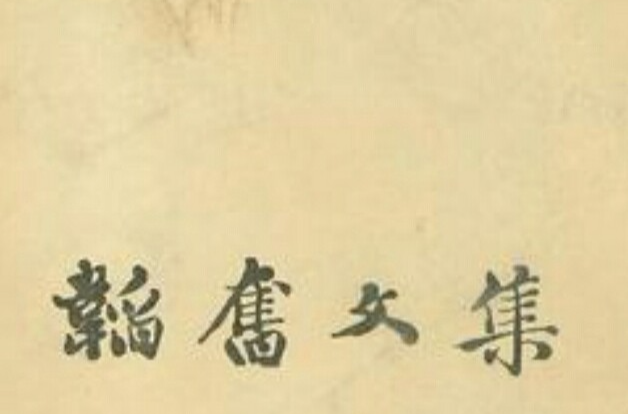 韜奮文集